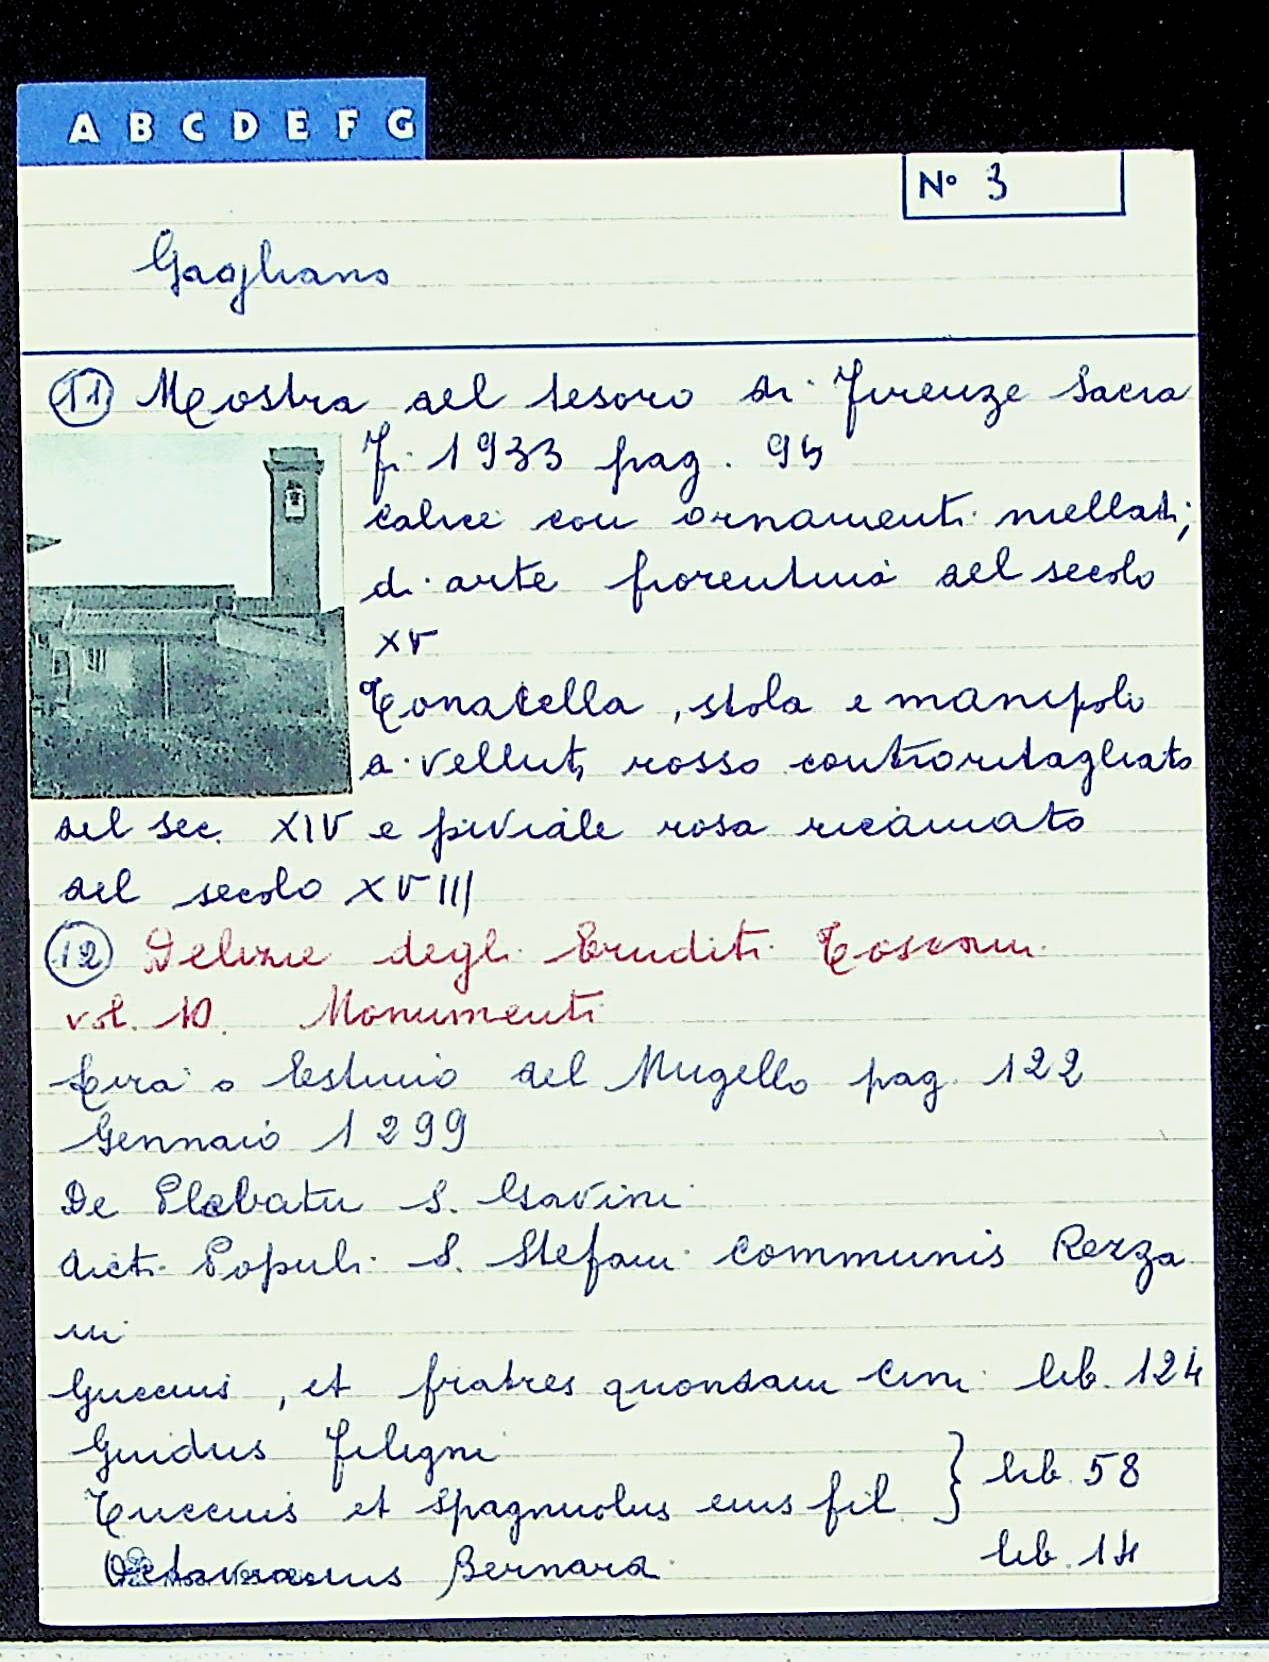 A B C D E F G
N° 3
Gagliano
11 Mostra del tesoro di Firenze Sacra
Fi. 1933 pag. 95
calice con ornamenti niellati;
di arte fiorentina del secolo
XV
Tonacella, stola e manipolo
a velluto rosso controritagliato
del sec. XIV e piviale rosa ricamato
del secolo XVIII
12 Delizie degli Eruditi Toscani
vol. 10. Monumenti
Lira o Estimo del Mugello pag. 122
Gennaio 1299
De Plebatu S. Gavini
dicti Populi S. Stefani Communis Rezza
ni
Guccius, et fratres quondam Cini lib. 124
Guidus Filigni
Tuccius et Spagnuolus eius fil } lib. 58
Octavianus Bernard lib. 14